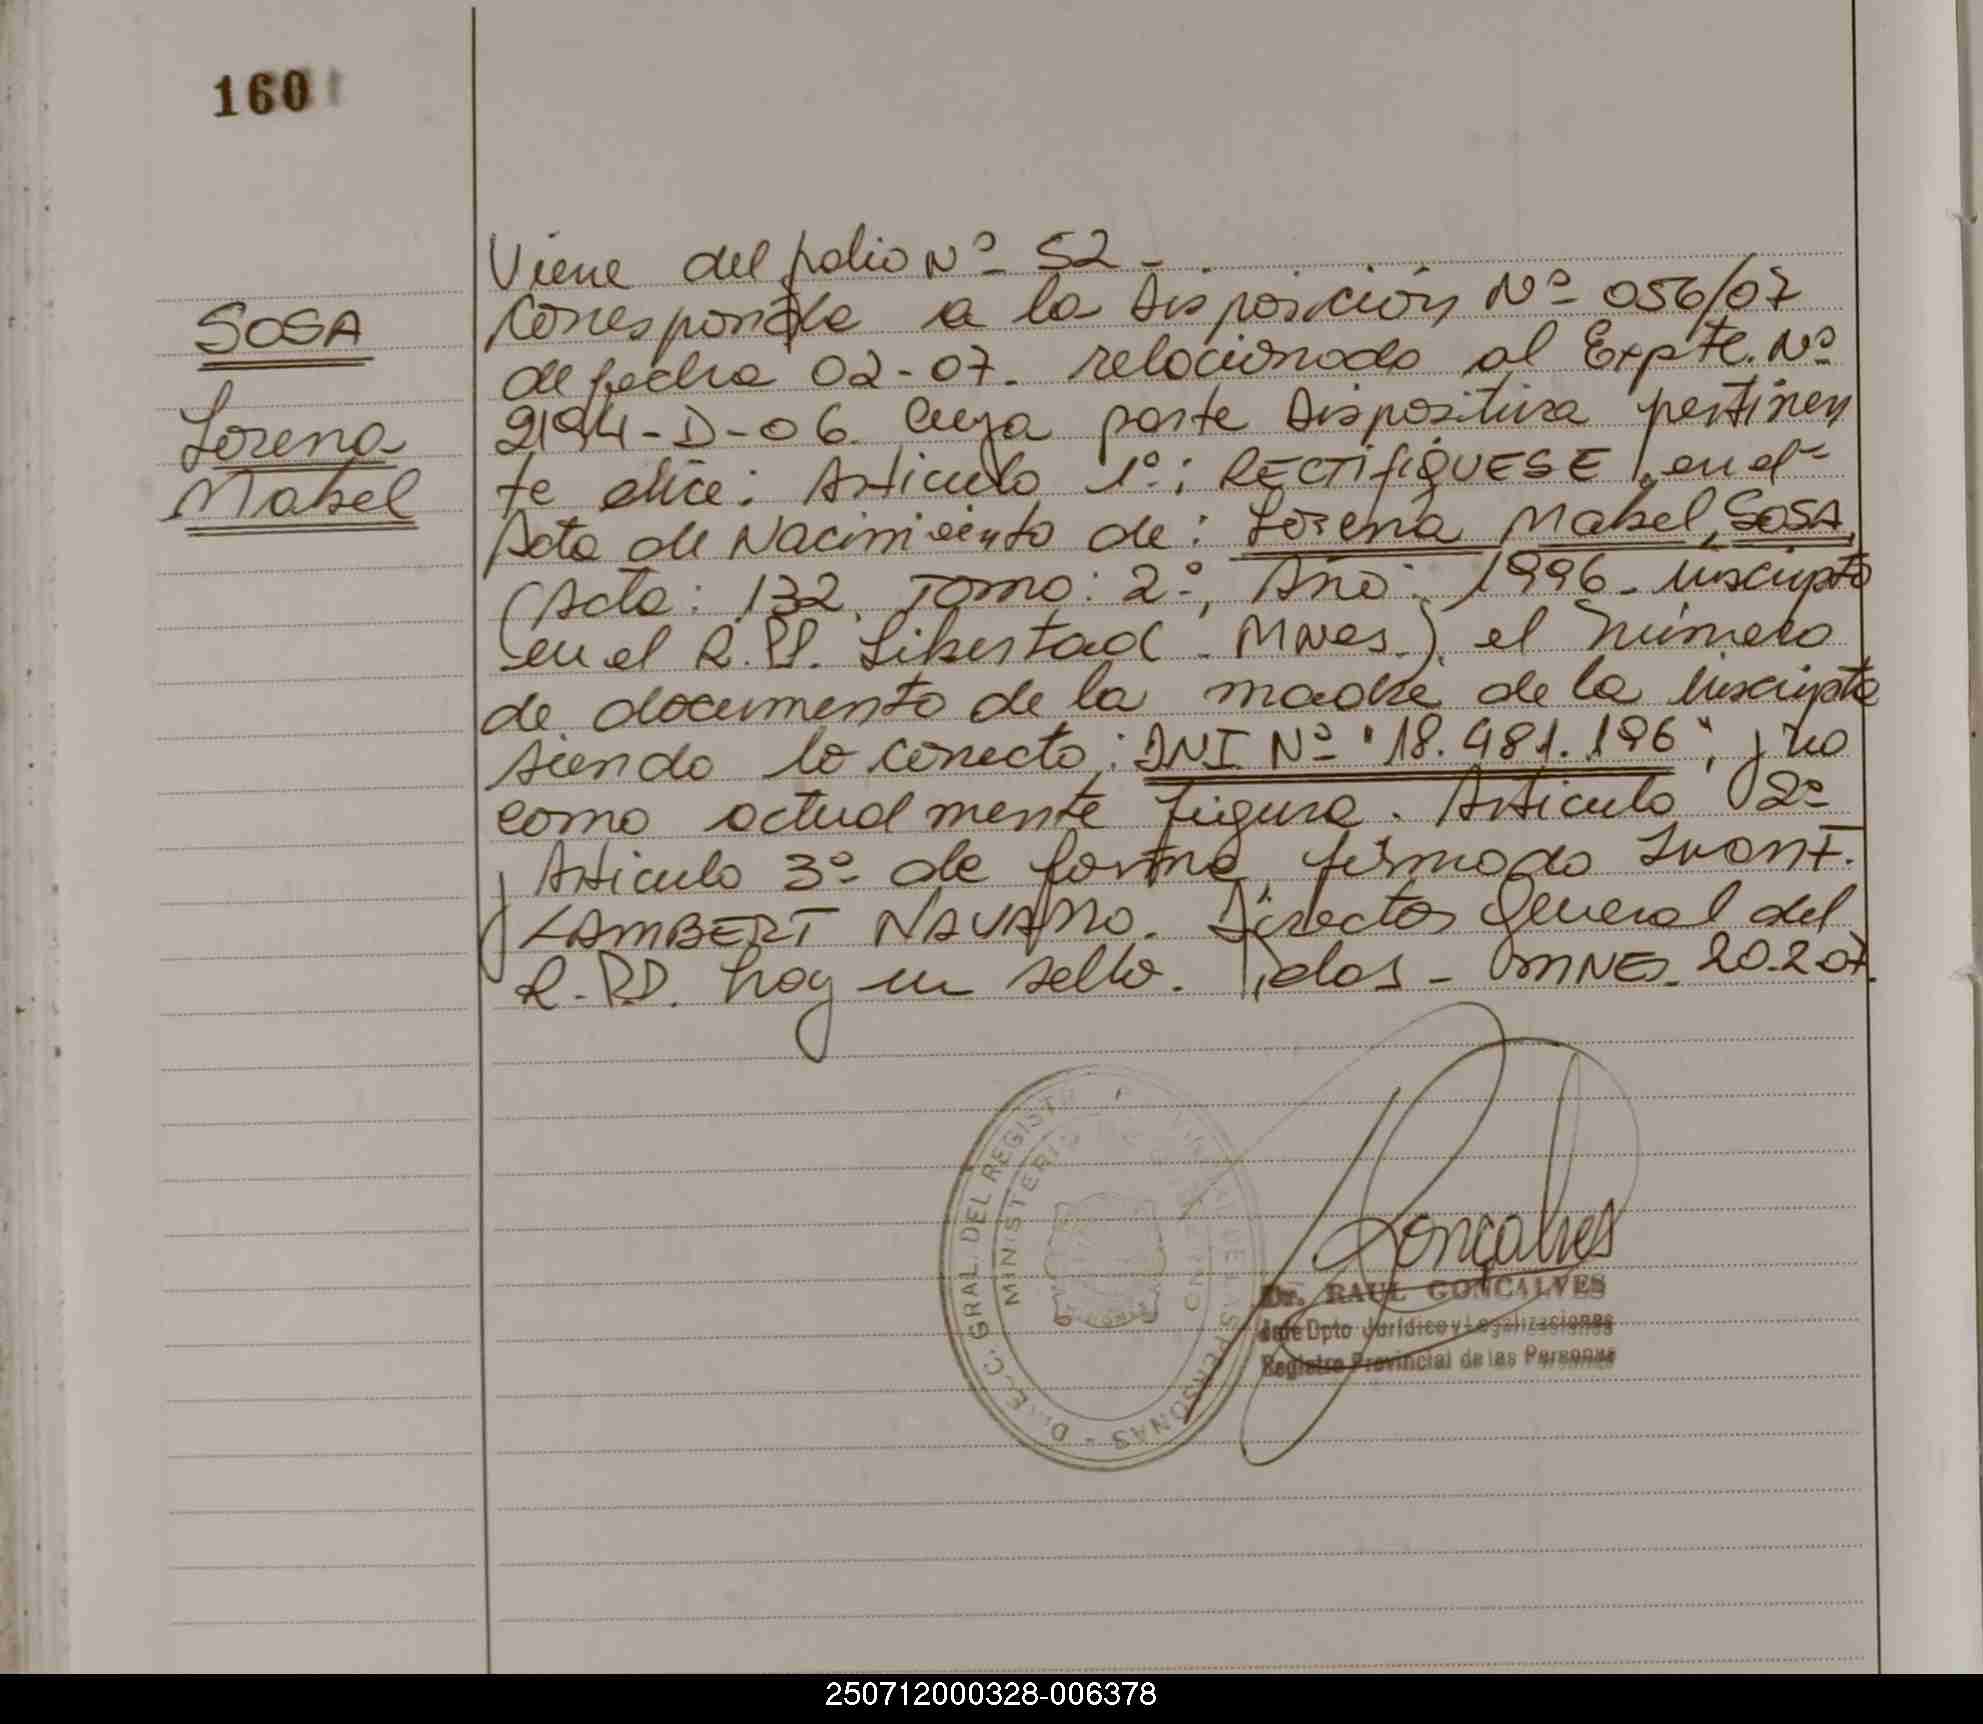 160
SOSA
Lorena
Mabel
Viene del folio Nº 52 -
Corresponde a la Disposición Nº 056/07
de fecha 02-07. relacionado al Expte. Nº
2194-D-06. Cuya parte Dispositiva pertinen
te dice: Artículo 1º: RECTIFIQUESE, en el
Acta de Nacimiento de: Lorena Mabel, SOSA
(Acta: 132, Tomo: 2º, Año: 1996 - inscripta
en el R.PP. Libertad - MNes.) el número
de documento de la madre de la inscripta
siendo lo correcto: DNI Nº "18.481.196", y no
como actualmente figura. Artículo 2º
y Artículo 3º de forma, firmado
LAMBERT NAVARRO. Director General del
R.PP. hay un sello. Pdas - MNES. 20.2.07.
DIREC. GRAL. DEL REGISTR PERSONAS -
MINISTERIO DE GOBIERNO
MISIONES
Gonçalves
Dr. RAUL GONÇALVES
Jefe Dpto Jurídico y Legalizaciones
Registro Provincial de las Personas
250712000328-006378